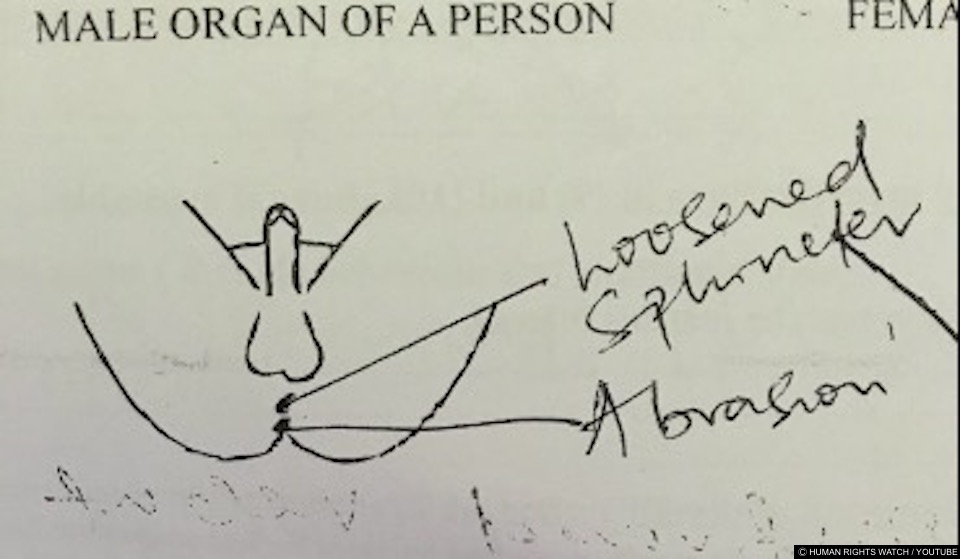 MALE ORGAN OF A PERSON
FEMA
Loosened
Sphincter
Abrasion
© HUMAN RIGHTS WATCH / YOUTUBE